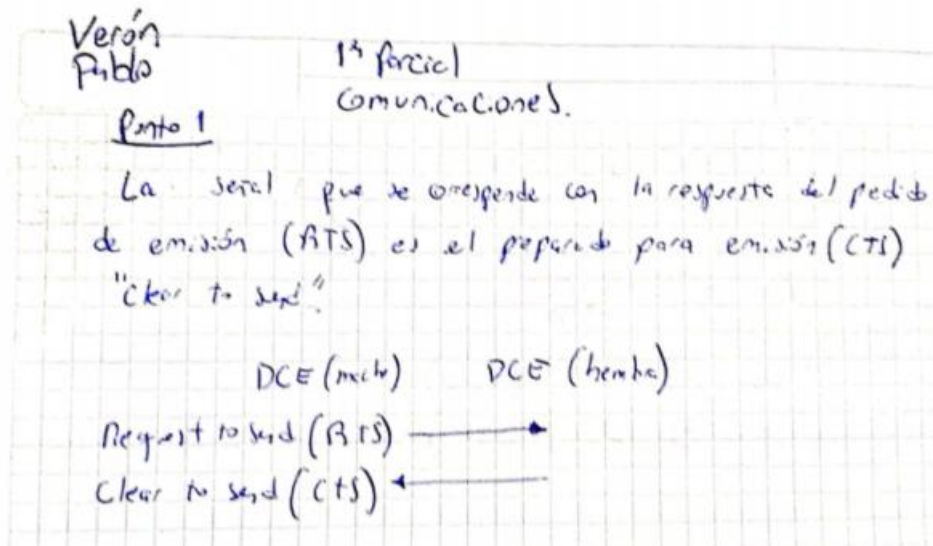 Verón
Pablo
1º Parcial
Comunicaciones.
Punto 1
La señal que se corresponde con la respuesta del pedido
de emisión (RTS) es el preparado para emisión (CTS)
"Clear to send".
DCE (macho) DCE (hembra)
Request to send (RTS)
Clear to send (CTS)